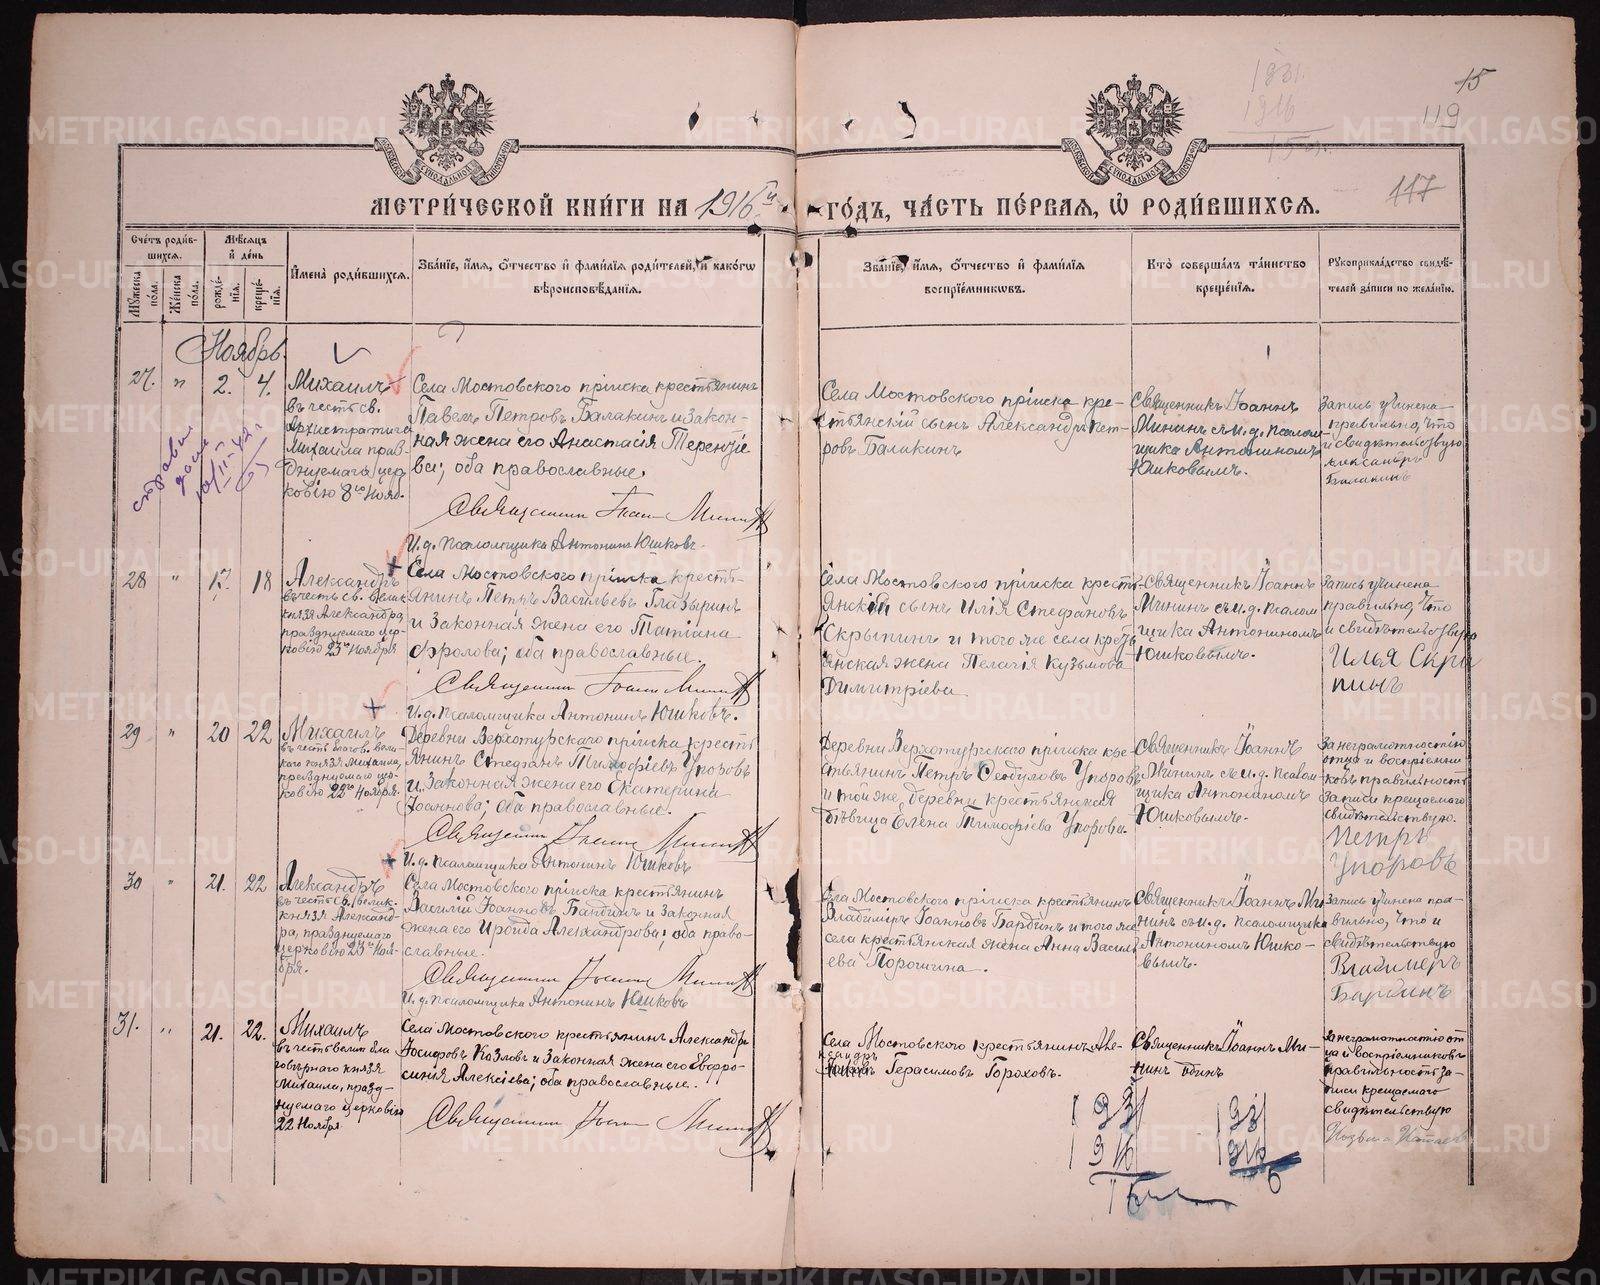 15
1931.
1916
119
117
МЕТРИ́ЧЕСКОЙ КНИ́ГИ НА 1916й ГО́ДЪ, ЧА́СТЬ ПЕ́РВАЯ, Ѽ РОДИ́ВШИХСЯ.
Сче́тъ роди́в-
шихся.
Мꙋ́жеска по́ла.
Же́нска по́ла.
Мѣ́сяцъ
и҆ де́нь
рожде́-
нїя.
креще́-
нїя.
И҆мена̀ роди́вшихся.
Зва́нїе, и҆́мя, ѻ҆́тчество и҆ фами́лїя роди́телей, и҆ како́гѡ
вѣроисповѣ́данїя.
Зва́нїе, и҆́мя, ѻ҆́тчество и҆ фами́лїя
воспрїе́мникѡвъ.
Кто̀ соверша́лъ та́инство
креще́нїя.
Рꙋкоприкла́дство свидѣ́-
телей за́писи по жела́нїю.
Ноябрь.
27. " 2. 4.
Михаилъ
въ честь св.
Архистратига
Михаила празд-
днуемаго цер-
ковію 8го Нояб.
Села Мостовского пріиска крестьянинъ
Павелъ Петровъ Балакинъ и закон-
ная жена его Анастасія Терентіе
ва; оба православные.
Священникъ Іоаннъ Мининъ
И.д. псаломщика Антонинъ Юшковъ.
Села Мостовского пріиска кре-
стьянскій сынъ Александръ Пет-
ровъ Балакинъ
Священникъ Іоаннъ
Мининъ съ и.д. псалом-
щика Антониномъ
Юшковымъ.
Запись учинена
правильно, что
и свидѣтельствую
Александръ
Балакинъ
28 " 17. 18
Александръ
въ честь св. Велик
князя Александра,
празднуемаго цер-
ковію 23го Ноября
Села Мостовского пріиска кресть-
янинъ Петръ Васильевъ Глазыринъ
и законная жена его Татіана
Фролова; оба православные.
Священникъ Іоаннъ Мининъ
И.д. псаломщика Антонинъ Юшковъ.
Села Мостовского пріиска кресть
янскій сынъ Илія Стефановъ
Скрыпинъ и того же села кресть
янская жена Пелагія Кузьмова
Димитріева
Священникъ Іоаннъ
Мининъ съ и.д. псалом
щика Антониномъ
Юшковымъ.
Запись учинена
правильно, что
и свидѣтельствую
Илья Скры
пинъ
29 " 20 22
Михаилъ
въ честь благов. вели-
каго князя Михаила,
празднуемаго цер-
ковію 22го Ноября.
Деревни Верхотурского пріиска кресть
янинъ Стефанъ Тимофіевъ Упоровъ
и законная жена его Екатерина
Іоаннова; оба православные.
Священникъ Іоаннъ Мининъ
И.д. псаломщика Антонинъ Юшковъ
Деревни Верхотурского пріиска кре-
стьянинъ Петръ Ѳеодуловъ Упоровъ
и той же деревни крестьянская
дѣвица Елена Тимофіева Упорова.
Священникъ Іоаннъ
Мининъ съ и.д. псалом-
щика Антониномъ
Юшковымъ.
За неграмотностію
отца и воспріемни
ковъ правильность
записи крещаемого
свидѣтельствую.
Петръ
Упоровъ
30 " 21. 22
Александръ
въ честь св. велик.
князя Александ-
ра, празднуемаго
церковію 23го Ноя-
бря.
Села Мостовского пріиска крестьянинъ
Василій Іоанновъ Бардинъ и законная
жена его Ираида Александрова; оба право-
славные.
Священникъ Іоаннъ Мининъ
И.д. псаломщика Антонинъ Юшковъ
Села Мостовского пріиска крестьянинъ
Владиміръ Іоанновъ Бардинъ и того же
села крестьянская жена Анна Василь
ева Порошина.
Священникъ Іоаннъ Ми
нинъ съ и.д. псаломщика
Антониномъ Юшко-
вымъ.
Запись учинена пра-
вильно, что и
свидѣтельствую
Владимеръ
Бардинъ
31. " 21. 22.
Михаилъ
въ честь велик бла
говѣрнаго князя
Михаила, празд-
нуемаго церковію
22 Ноября
Села Мостовского крестьянинъ Александръ
Іосифовъ Козловъ и законная жена его Евфро-
синія Алексіева; оба православные.
Священникъ Іоаннъ Мининъ
Села Мостовского крестьянинъ Але-
ксандръ
Герасимовъ Гороховъ.
Священникъ Іоаннъ Ми-
нинъ одинъ
За неграмотностію от
ца и воспріемниковъ
правильность за-
писи крещаемого
свидѣтельствую
1931
1916
15
1931
1916
METRIKI.GASO-URAL.RU